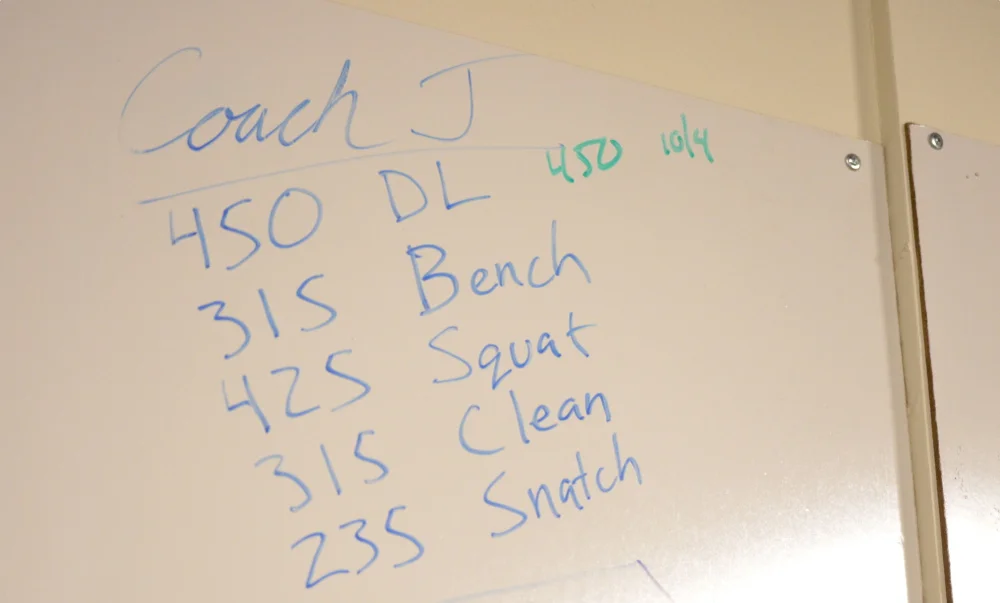 Coach J
450 DL 450 10/4
315 Bench
425 Squat
315 Clean
235 Snatch